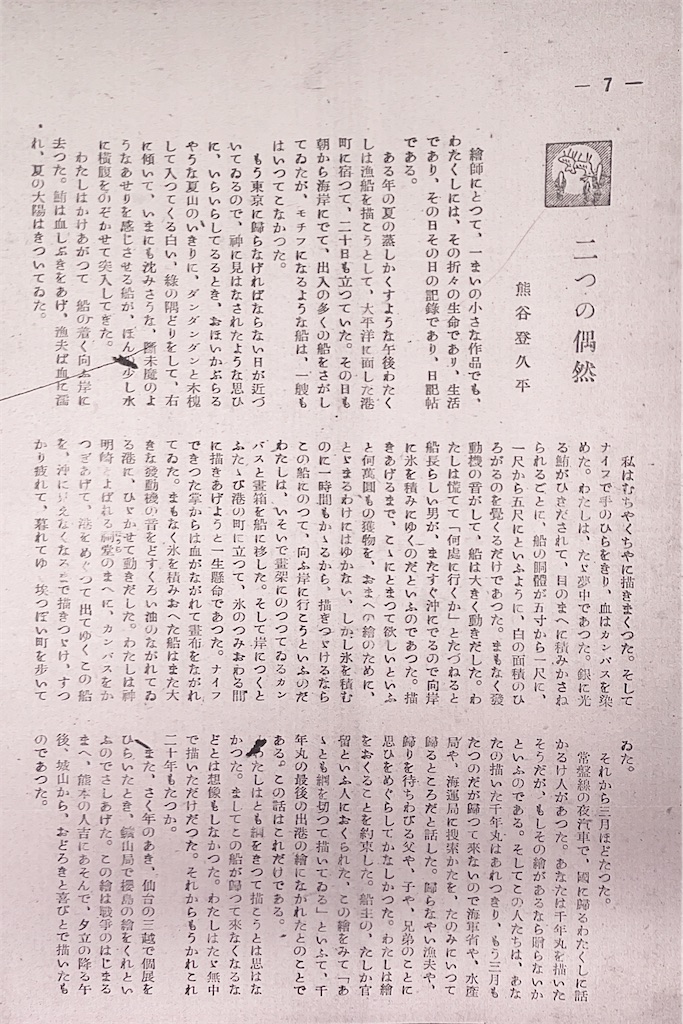 — 7 —
二つの偶然
熊谷登久平
繪師にとつて、一まいの小さな作品でも、
わたくしには、その折々の生命であり、生活
であり、その日その日の記錄であり、日記帖
である。
ある年の夏の蒸しかくすような午後わたく
しは漁船を描こうとして、太平洋に面した港
町に宿つて、二十日も立つていた。その日も
朝から海岸にでて、出入の多くの船をさがし
てゐたが、モチフになるような船は、一艘も
はいつてこなかつた。
もう東京に歸らなければならない日が近づ
いてゐるので、神に見はなされたような思ひ
に、いらいらしてゐるとき、おほいかぶらる
やうな夏山のいきりに、ダンダンダンと木槐
して入つてくる白い、綠の隅どりをして、右
に傾いて、いまにも沈みさうな、斷末魔のよ
うなあせりを感じさせる船が、ほん 少し水
に橫腹をのぞかせて突入してきた。
わたしはかけあがつて 船の着く向ふ岸に
去つた。鮪は血しぶきをあげ、漁夫ば血に濡
れ、夏の太陽はきついてゐた。
私はむちやくちやに描きまくつた。そして
ナイフで手のひらをきり、血はカンバスを染
めた。わたしは、たゞ夢中であつた。銀に光
る鮪がひきだされて、目のまへに積みかさね
られるごとに、船の胴體が五寸から一尺に、
一尺から五尺にといふように、白の面積のひ
ろがるのを覺くるだけであつた。まもなく發
動機の音がして、船は大きく動きだした。わ
たしは慌てて「何處に行くか」とたづねると
船長らしい男が、またすぐ沖にでるので向岸
に氷を積みにゆくのだといふのであつた。描
きあげるまで、こゝにとまつて欲しいといふ
と何萬圓もの獲物を、おまへの繪のために、
とゞまるわけにはゆかない、しかし氷を積む
のに一時間もかゝるから、描きつゞけるなら
この船にのつて、向ふ岸に行こうといふのだ
わたしは、いそいで畫架にのつてゐるカン
バスと畫箱を船に移した。そして岸につくと
ふたゝび港の町に立つて、氷のつみおわる間
に描きあげようと一生懸命であつた。ナイフ
できつた掌からは血がながれて畫布をながれ
てゐた。まもなく氷を積みおへた船はまた大
きな發動機の音をどすくろい油のながれてゐ
る港に、ひゞかせて動きだした。わたしは神
明崎とよばれる祠堂のまへに、カンバスをか
つぎあげて、港をめぐつて出てゆくこの船
を、沖に見えなくなるまで描きつゞけ、すつ
かり疲れて、暮れてゆ 埃つぽい町を歩いて
ゐた。
それから三月ほどたつた。
常盤線の夜汽車で、國に歸るわたくしに話
かけ人があつた。あなたは千年丸を描いた
そうだが、もしその繪があるなら贈らないか
といふのである。そしてこの人たちは、あな
たの描いた千年丸はあれつきり、もう三月も
たつのだが歸つて來ないので海軍省や、水產
局や、海運局に搜索かたを、たのみにいつて
歸るところだと話した。歸らなやい漁夫や、
歸りを待ちわびる父や、子や、兄弟のことに
思ひをめぐらしてかなしかつた。わたしは繪
をおくることを約束した。船主の、たしか官
留といふ人におくられた、この繪をみて「あ
ゝとも綱を切つて描いてゐる」といふて、千
年丸の最後の出港の繪にながれたとのことで
ある。この話はこれだけである。
わたしはとも綱をきつて描こうとは思はな
かつた。ましてこの船が歸つて來なくなるな
どとは想像もしなかつた。わたしはたゞ無中
で描いただけだつた。それからもうかれこれ
二十年もたつか。
また、さく年のあき、仙台の三越で個展を
ひらいたとき、鑛山局で櫻島の繪をくれとい
ふのでさしあげた。この繪は戰爭のはじまる
まへ、熊本の人吉にあそんで、夕立の降る午
後、城山から、おどろきと喜びとで描いたも
のであつた。